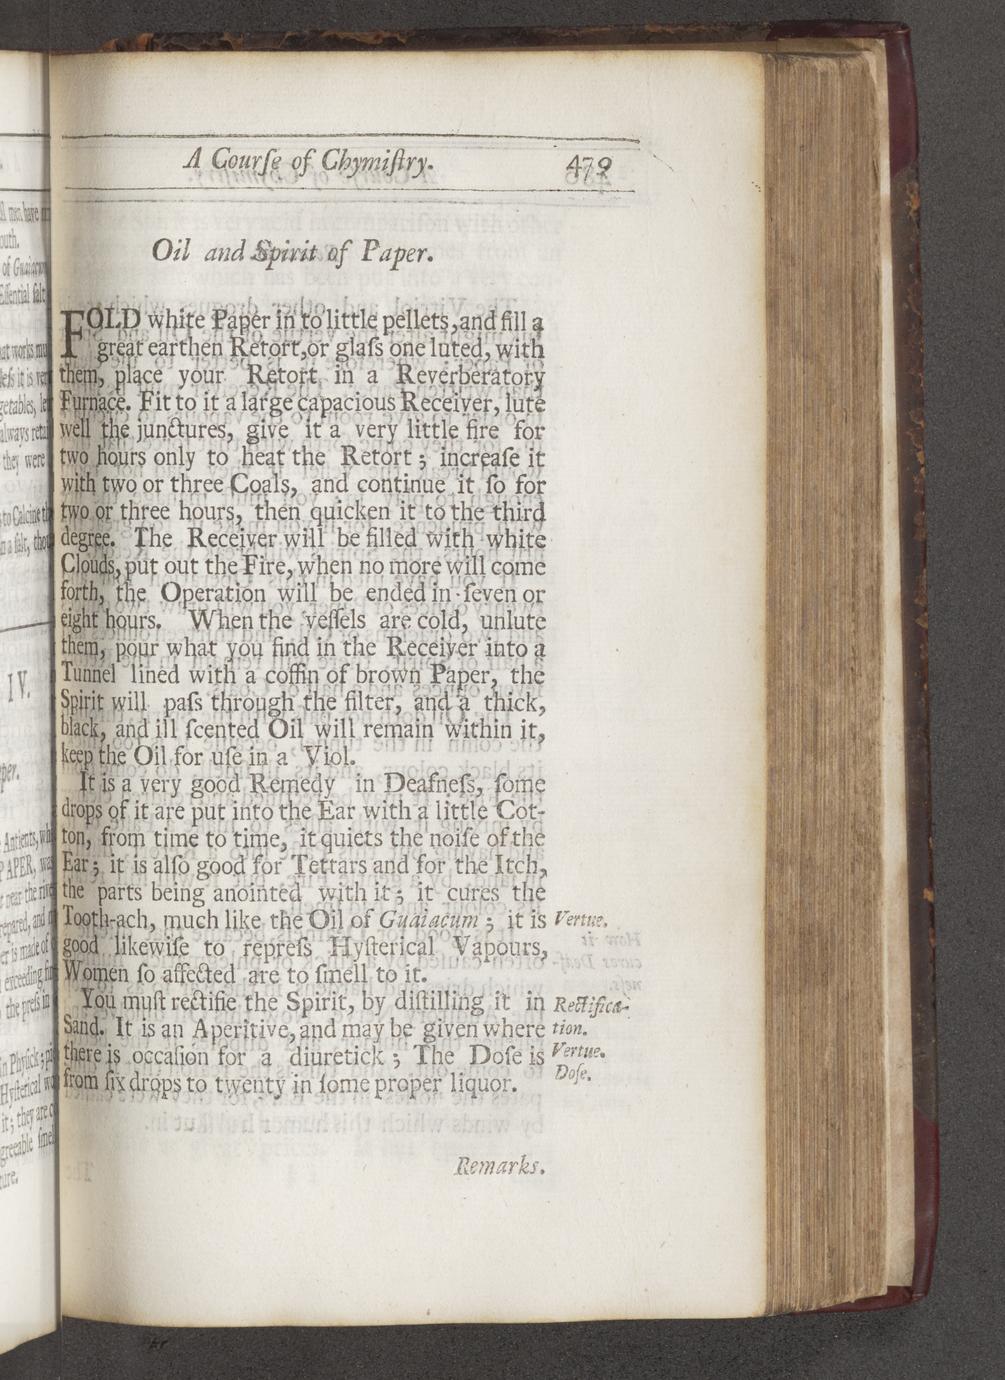 A Courſe of Chymiſtry. 479
Oil and Spirit of Paper.
FOLD white Paper in to little pellets, and fill a
great earthen Retort, or glaſs one luted, with
them, place your Retort in a Reverberatory
Furnace. Fit to it a large capacious Receiver, lute
well the junctures, give it a very little fire for
two hours only to heat the Retort ; increaſe it
with two or three Coals, and continue it ſo for
two or three hours, then quicken it to the third
degree. The Receiver will be filled with white
Clouds, put out the Fire, when no more will come
forth, the Operation will be ended in ſeven or
eight hours. When the veſſels are cold, unlute
them, pour what you find in the Receiver into a
Tunnel lined with a coffin of brown Paper, the
Spirit will paſs through the filter, and a thick,
black, and ill ſcented Oil will remain within it,
keep the Oil for uſe in a Viol.
It is a very good Remedy in Deafneſs, ſome
drops of it are put into the Ear with a little Cot-
ton, from time to time, it quiets the noiſe of the
Ear ; it is alſo good for Tettars and for the Itch,
the parts being anointed with it ; it cures the
Tooth-ach, much like the Oil of Guaiacum ; it is
Vertue.
good likewiſe to repreſs Hyſterical Vapours,
Women ſo affected are to ſmell to it.
You muſt rectifie the Spirit, by diſtilling it in
Rectifica-
Sand. It is an Aperitive, and may be given where
tion.
there is occaſion for a diuretick ; The Doſe is
Vertue.
Doſe.
from ſix drops to twenty in ſome proper liquor.
Remarks.